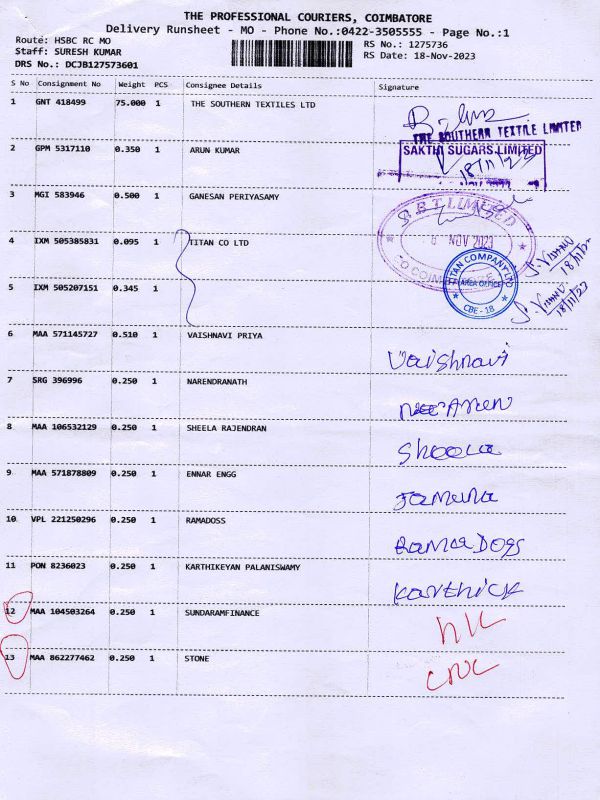 THE PROFESSIONAL COURIERS, COIMBATORE
Delivery Runsheet - MO - Phone No.:0422-3505555 - Page No.:1
Route: HSBC RC MO RS No.: 1275736
Staff: SURESH KUMAR RS Date: 18-Nov-2023
DRS No.: DCJB127573601
S No Consignment No Weight PCS Consignee Details Signature
1 GNT 418499 75.000 1 THE SOUTHERN TEXTILES LTD
THE SOUTHERN TEXTILE LIMITED
2 GPM 5317110 0.350 1 ARUN KUMAR SAKTHI SUGARS LIMITED
18/11/23
3 MGI 583946 0.500 1 GANESAN PERIYASAMY
LIMITED
4 IXM 505385831 0.095 1 TITAN CO LTD NOV 2023
TITAN COMPANY LTD
AREA OFFICE
CBE - 18
5 IXM 505207151 0.345 1
18/11/23
6 MAA 571145727 0.510 1 VAISHNAVI PRIYA Vaishnavi
7 SRG 396996 0.250 1 NARENDRANATH
8 MAA 106532129 0.250 1 SHEELA RAJENDRAN Sheela
9 MAA 571878809 0.250 1 ENNAR ENGG Jamuna
10 VPL 221250296 0.250 1 RAMADOSS RamaDoss
11 PON 8236023 0.250 1 KARTHIKEYAN PALANISWAMY Karthick
12 MAA 104503264 0.250 1 SUNDARAMFINANCE
13 MAA 862277462 0.250 1 STONE